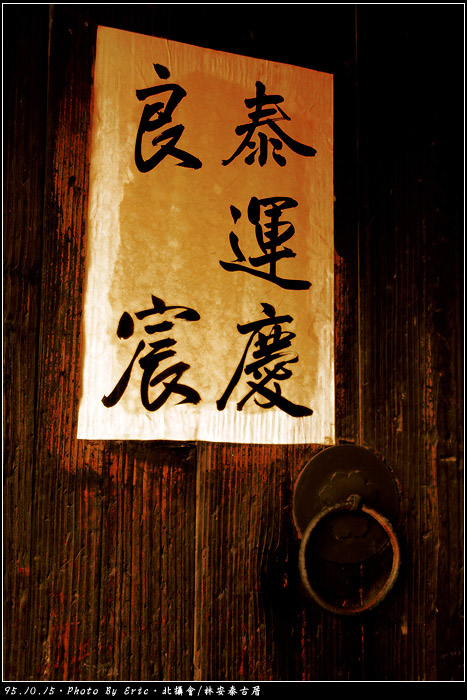 泰運慶
良宸
95.10.15·Photo By Eric·北攝會/林安泰古厝